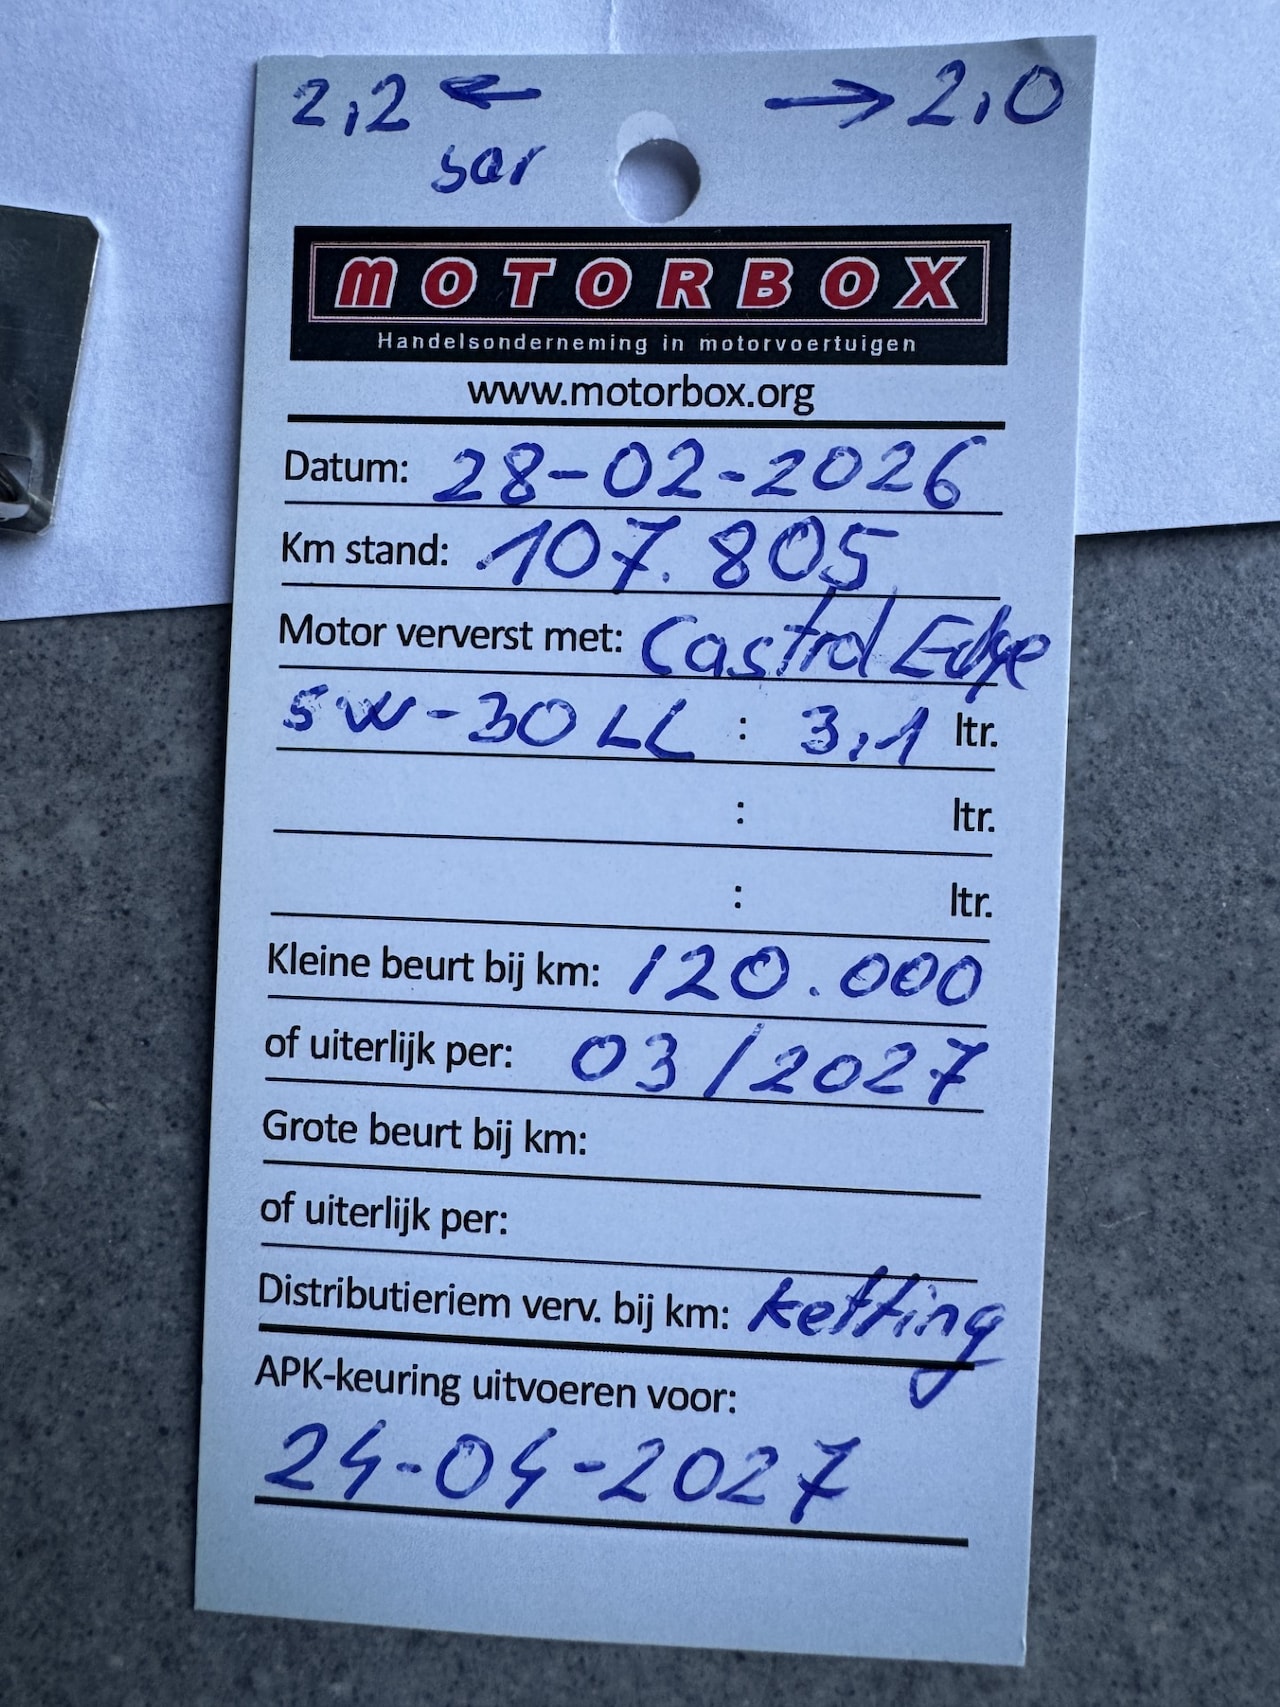 2,2 ← → 2,0
bar
MOTORBOX
Handelsonderneming in motorvoertuigen
www.motorbox.org
Datum: 28-02-2026
Km stand: 107.805
Motor ververst met: Castrol Edge
5W-30 LL : 3,1 ltr.
: ltr.
: ltr.
Kleine beurt bij km: 120.000
of uiterlijk per: 03/2027
Grote beurt bij km:
of uiterlijk per:
Distributieriem verv. bij km: ketting
APK-keuring uitvoeren voor:
24-04-2027